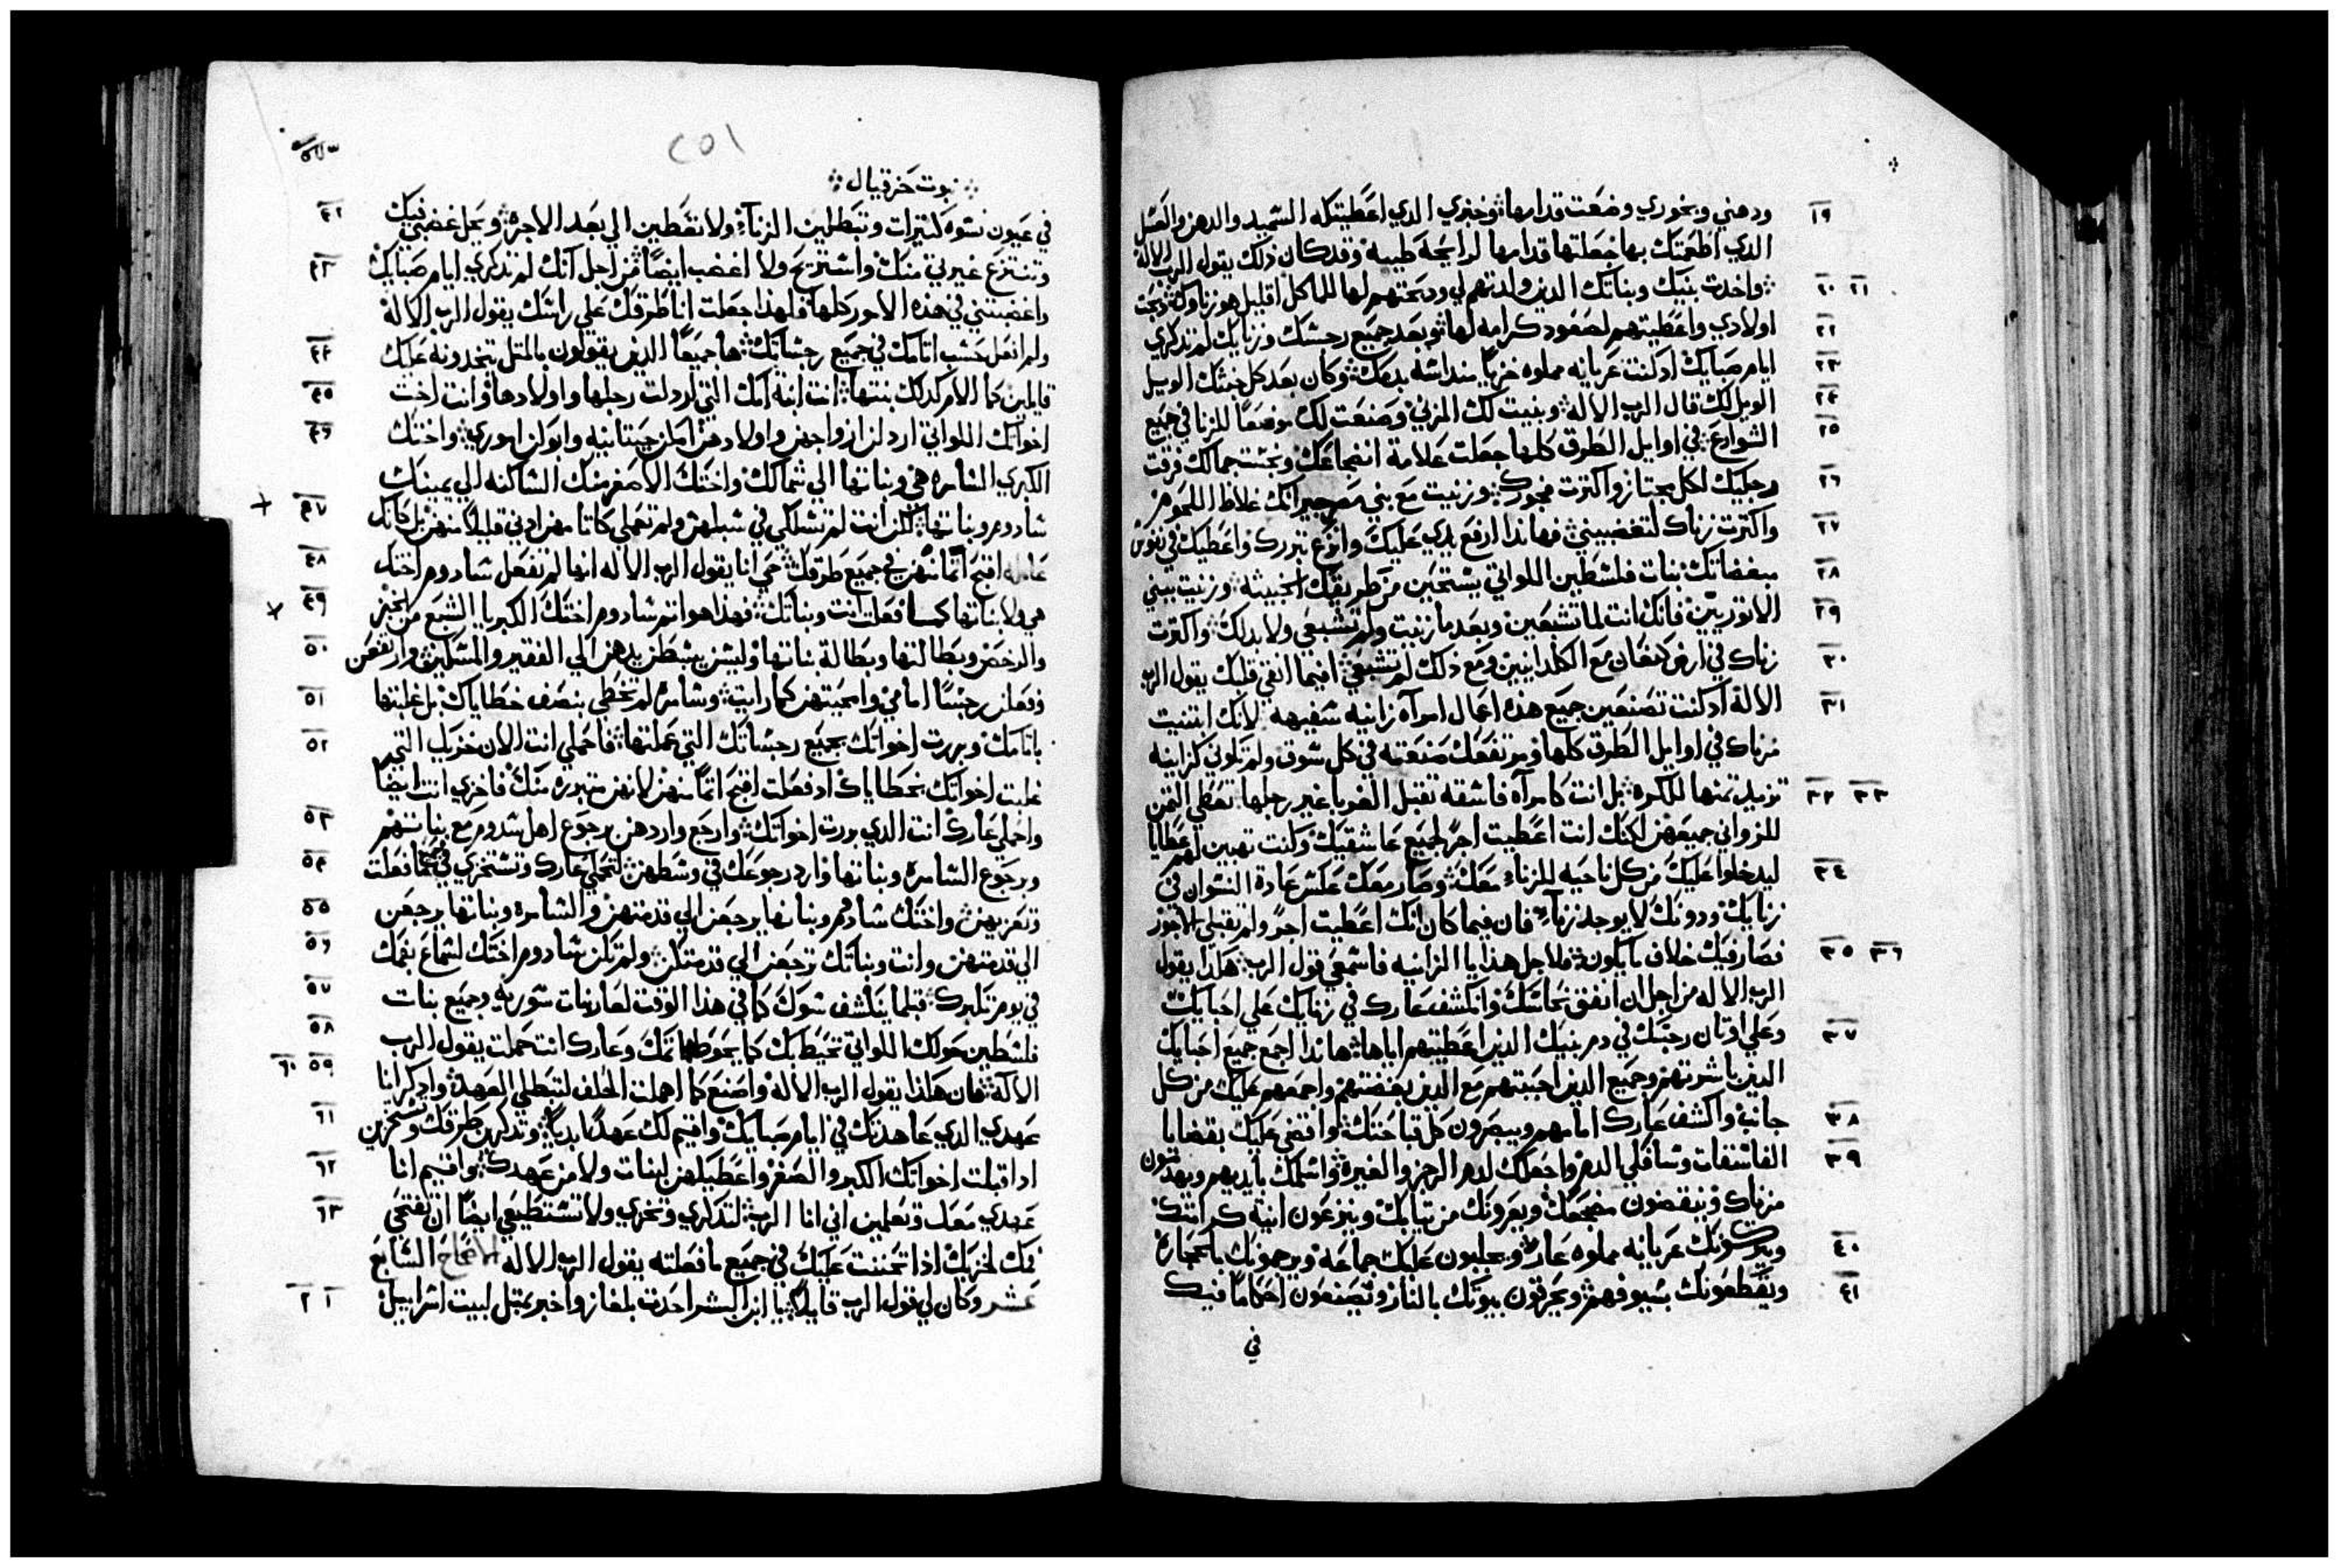 ودهني وبخوري وضعت قدامها وخبزي الدي اعطيتكه السميد والدهن والعسل ١٩
الدي اطعمتك بها جعلتها قدامها لرايحة طيبة وقد كان ذلك يقول الرب الاله
واخدت بنيك وبناتك الدين ولدتهم لي ودبحتهم لها للماكل اقليل هو زناوك دبحت ٢٠ ٢١
اولادي واعطيتهم لصعود كرامه لها وبعد جميع رجسك وزنايك لم تدكري ٢٢
ايام صبايك اد كنت عريانه مملوه خزيا منداسه بدمك وكان بعد كل خبثك الويل ٢٣
الويل لك قال الرب الاله وبنيت لك المزني وصنعت لك موضعا للزنا في جميع ٢٤
الشوارع في اوايل الطرق كلها جعلت علامة انفجاعك ونجست جمالك فرقت ٢٥
رجليك لكل مجتاز واكترت فجورك وزنيت مع بني مصر جيرانك غلاظ اللحوم ٢٦
واكترت زناك لتغضبيني فهاندا ارفع يدي عليك وانزع تبررك واعطيك في نفوس ٢٧
مبغضاتك بنات فلسطين اللواتي يستحين من طريقك الخبيثة وزنيت ببني ٢٨
الاتوريين فانك انت لما تشبعين وبعد ما زنيت ولم تشبعي ولا بدلك واكترت ٢٩
زناك في ارض كنعان مع الكلدانيين ومع ذلك لم تشبعي افيما انقي قلبك يقول الرب ٣٠
الاله اد كنت تصنعين جميع هذه اعمال امرآه زانيه سفيهه لانك ابتنيت ٣١
مزناك في اوايل الطرق كلها ومرتفعك صنعته في كل سوق ولم تكوني كزانيه
تزيد تمنها للكره بل انت كامرآه فاسقه تقبل الغربا غير رجلها تعطي التمن ٣٢ ٣٣
للزواني جميعهن لكنك انت اعطيت اجرا لجميع عاشقيك وكنت تهبين لهم عطايا
ليدخلوا عليك من كل ناحيه للزناء معك وصار معك عكس عادة النسوان في ٣٤
زنايك ودونك لا يوجد زناء فان فيما كان انك اعطيت اجرا ولم تقبلي الاجور
فصار فيك خلاف ما يكون فلاجل هذا يا الزانيه فاسمعي قول الرب هكذا يقول ٣٥ ٣٦
الرب الاله من اجل ان انفق نحاسك وانكشف عارك في زنايك علي احبايك
وعلي اوتان رجسك في دم بنيك الدين اعطيتهم اياها هاندا اجمع جميع احبايك ٣٧
الدين باشرتهم وجميع الدين احببتهم مع الدين بغضتهم واجمعهم عليك من كل
جانب واكشف عارك امامهم ويبصرون كل قباحتك واقضي عليك بقضايا ٣٨
الفاسقات وسافكي الدم واجعلك لدم الرجز والغيره واسلمك بايديهم ويهدمون ٣٩
مزناك وينقضون مضجعك ويعرونك من تيابك وينزعون انية كرامتك
ويتركونك عريانه مملوه عارا ويجلبون عليك جماعة ويرجمونك بالحجارة ٤٠
ويقطعونك بسيوفهم ويحرقون بيوتك بالنار ويصنعون احكاما فيك ٤١
في
٢٥١
نبوت حزقيال
في عيون نسوه كتيرات وتبطلين الزناء ولا تعطين الي بعد الاجره ويحل غضبي فيك ٤٢
وتنتزع غيرتي منك واستريح ولا اغضب ايضا من اجل انك لم تدكري ايام صبايك ٤٣
واغضبتني في هذه الامور كلها فلهذا جعلت انا طرقك علي راسك يقول الرب الاله
ولم افعل حسب اتامك في جميع رجساتك ها جميعا الدين يقولون بالمتل يتخدونه عليك ٤٤
قايلين كما الام كدلك بنتها انت ابنة امك التي اردلت رجلها واولادها وانت اخت ٤٥
اخواتك اللواتي اردلن ازواجهن واولادهن امكن حيتانيه وابوكن اموري واختك ٤٦
الكبري السامره هي وبناتها الي شمالك واختك الاصغر منك الساكنه الي يمينك
سادوم وبناتها لكن انت لم تسلكي في سبلهن ولم تعملي كاتامهن ادني قليلا منهن بل كانك ٤٧
عامله اقبح اتما منهن في جميع طرقك حي انا يقول الرب الاله انها لم تفعل سادوم اختك ٤٨
هي ولا بناتها كما فعلت انت وبناتك فهذا هو اتم سادوم اختك الكبريا الشبع من الخبز ٤٩
والرخص وبطالتها وبطالة بناتها وليس يبسطن يدهن الي الفقير والمسكين وارتفعن ٥٠
وفعلن رجسا امامي وامحيتهن كما رايت وسامره لم تخطي بنصف خطاياك بل غلبتها ٥١
باتامك وبررت اخواتك بجميع رجساتك التي عملتها فاحملي انت الان خزيك التي ٥٢
غلبت اخواتك بخطاياك اد فعلت اقبح اتما منهن لانهن متبرره منك فاخزي انت ايضا
واحملي عارك انت الدي بررت اخواتك وارجع واردهن برجوع اهل سدوم مع بناتهم ٥٣
وبرجوع السامره وبناتها وارد رجوعك في وسطهن لتحملي عارك وتستخزي في جميع ما فعلت ٥٤
وتعزيهن واختك سادوم وبناتها يرجعن الي قدمتهن والسامره وبناتها يرجعن ٥٥
الي قدمتهن وانت وبناتك ترجعن الي قدمتكن ولم تكن سادوم اختك لسماع بفمك ٥٦
في يوم تكبرك قبلما ينكشف سوك كما في هذا الوقت لعار بنات سوريه وجميع بنات ٥٧
فلسطين حولك اللواتي تحيط بك كما يحوط اتمك وعارك انت حملت يقول الرب ٥٨
الاله فان هكذا يقول الرب الاله واصنع كما اهملت الحلف لتبطلي العهد وادكر انا ٥٩ ٦٠
عهدي الدي عاهدتك في ايام صبايك واقيم لك عهدا ابديا وتدكرين طرقك وتستخزين ٦١
ادا قبلت اخواتك الكبر والصغر واعطيكهن لبنات ولا من عهدك واقيم انا ٦٢
عهدي معك وتعلمين اني انا الرب لتدكري وتخزي ولا تستطيعي ايضا ان تفتحي ٦٣
فمك لخزيك ادا تحننت عليك في جميع ما فعلته يقول الرب الاله الاصحاح السابع
عشر وكان لي قول الرب قايلا يا ابن البشر احدت بلغاز واخبر بمتل لبيت اسراييل ١ ٢